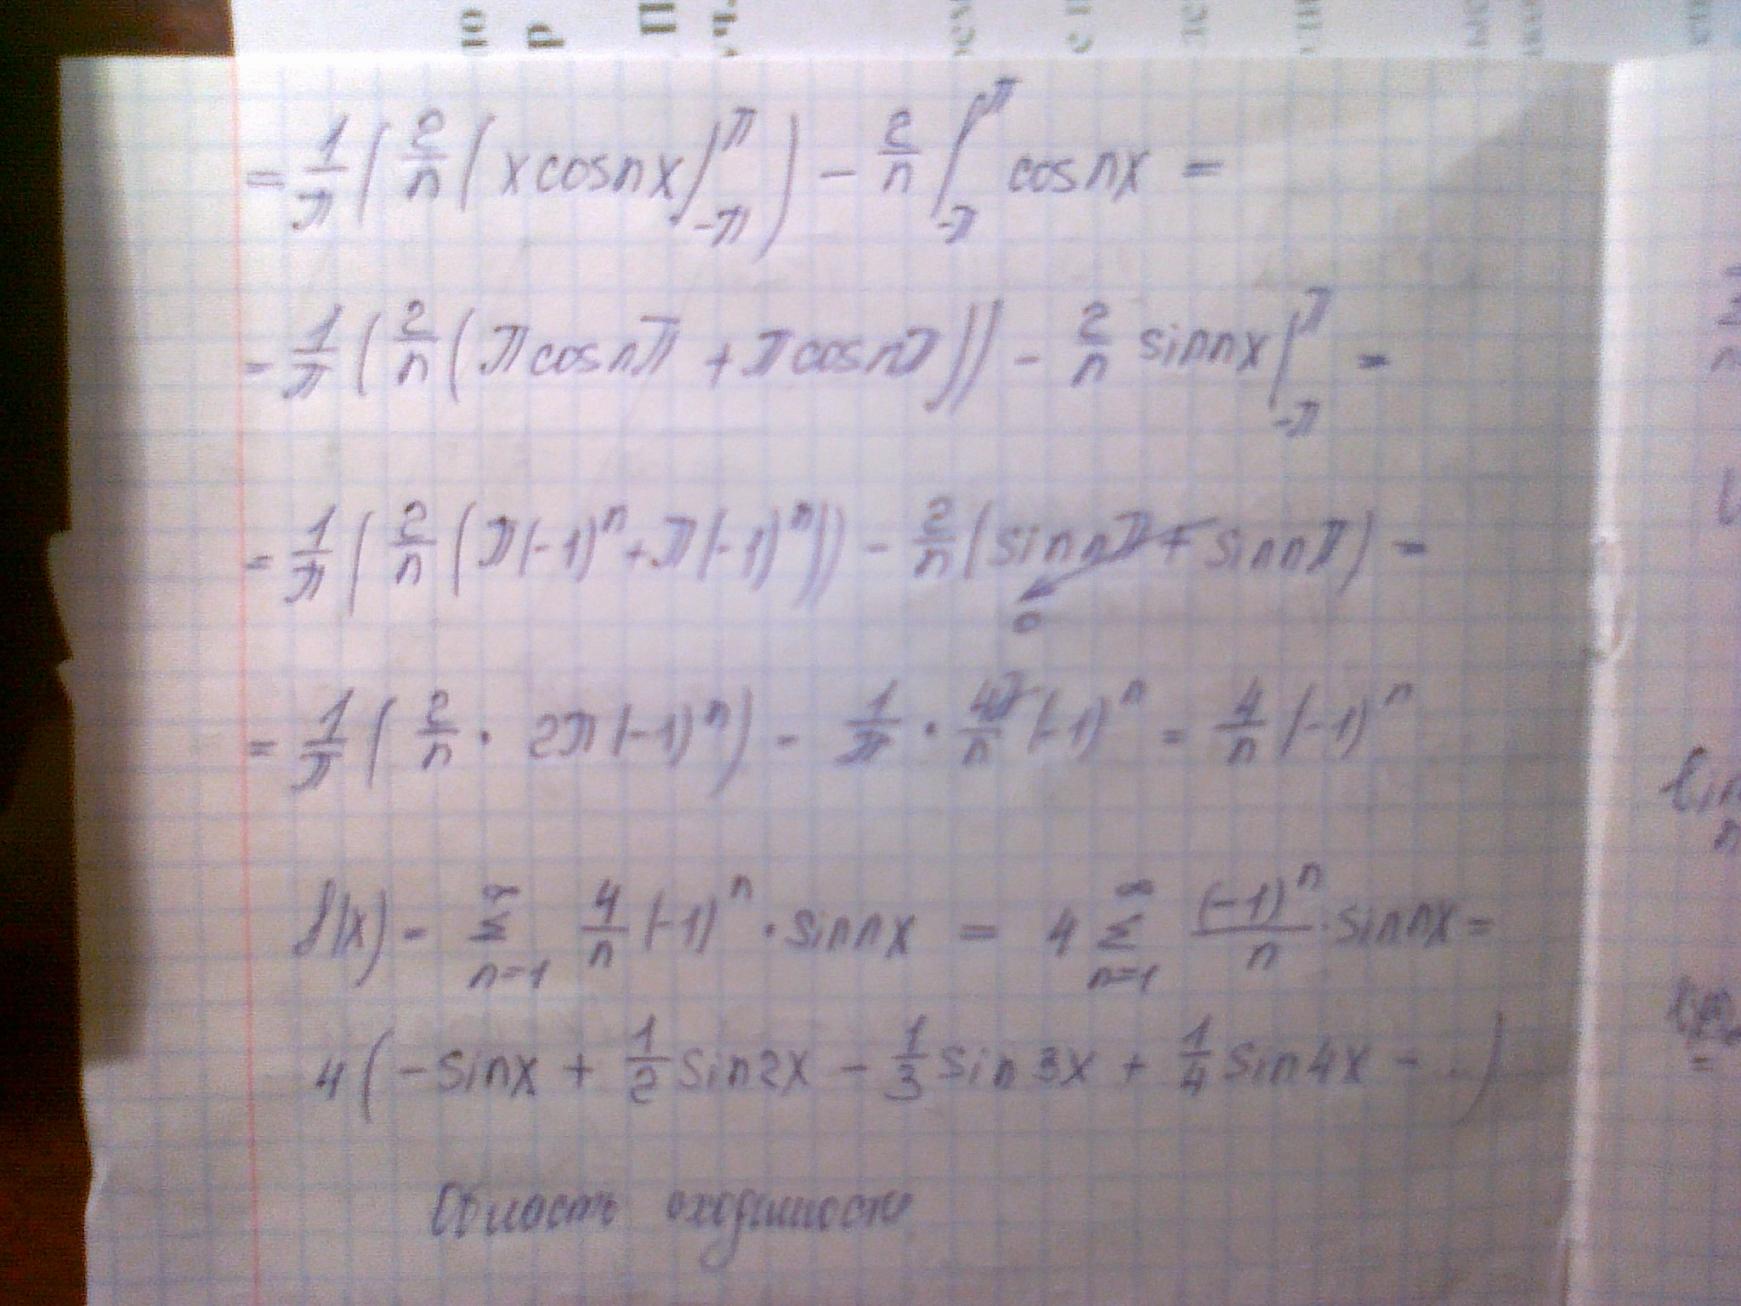 = 1/π ( 2/n ( x cos nx |_{-π}^{π} ) - 2/n ∫_{-π}^{π} cos nx =
= 1/π ( 2/n ( π cos nπ + π cos nπ )) - 2/n sin nx |_{-π}^{π} =
= 1/π ( 2/n ( π(-1)^n + π(-1)^n )) - 2/n ( sin nπ + sin nπ ) =
0
= 1/π ( 2/n · 2π (-1)^n ) = 1/π · 4π/n (-1)^n = 4/n (-1)^n
f(x) = ∑_{n=1}^{∞} 4/n (-1)^n · sin nx = 4 ∑_{n=1}^{∞} (-1)^n/n · sin nx =
4 ( - sin x + 1/2 sin 2x - 1/3 sin 3x + 1/4 sin 4x - ...)
Область сходимости